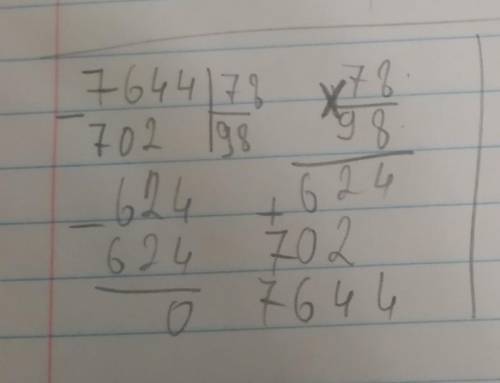 7644|78
- 702 |98
- 624
624
0
x 78
98
+ 624
702
7644